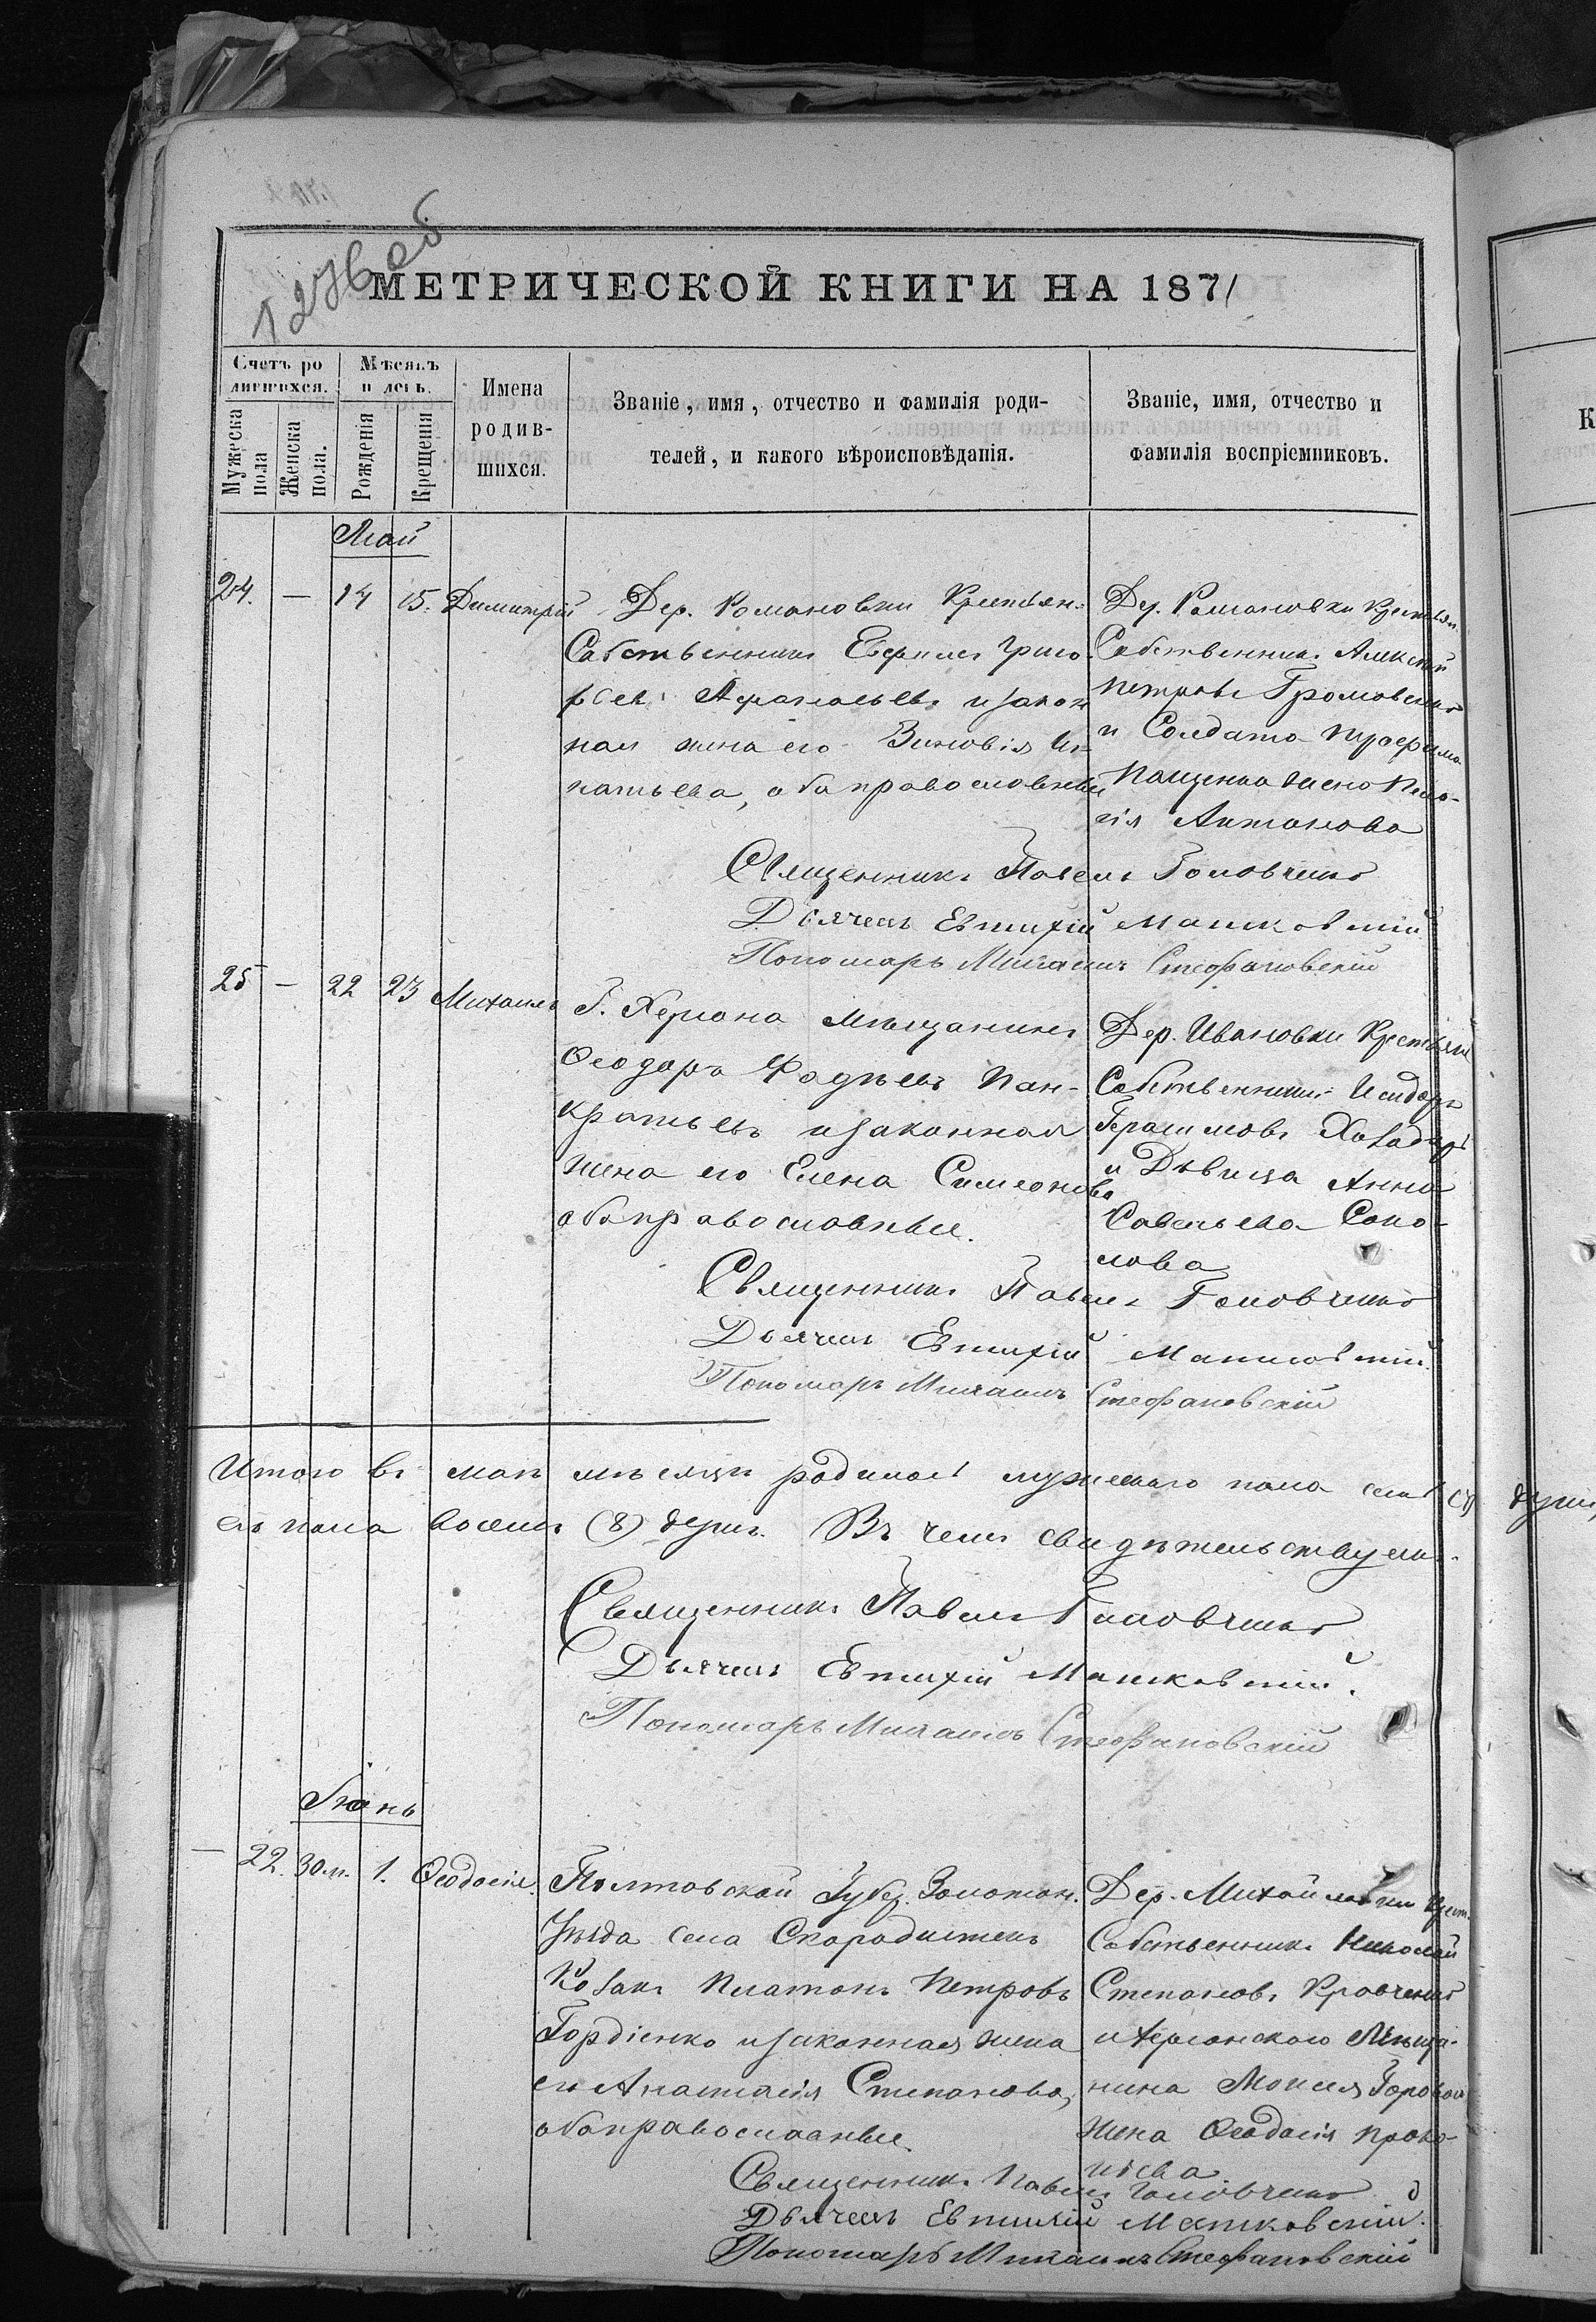 1276 об
МЕТРИЧЕСКОЙ КНИГИ НА 1871
Счетъ ро
дившихся.
Мѣсяцъ
и день.
Мужеска
пола
Женска
пола.
Рожденія
Крещенія
Имена
родив-
шихся.
Званіе, имя, отчество и фамилія роди-
телей, и какого вѣроисповѣданія.
Званіе, имя, отчество и
фамилія воспріемниковъ.
Май
24. — 14 15. Димитрій
Дер. Романовки Крестьян.
Собственникъ Ефремъ Григо-
рьевъ Афанасьевъ и закон
ная жена его Зиновія Иг-
натьева, оба православные
Дер. Романовки Крестьян.
Собственникъ Алексей
Петровъ Громовенко
и Солдата Трофима
Пащенка жена Пела-
гія Антонова
Священникъ Павелъ Головченко
Дьячекъ Евтихій Машковскій
Пономарь Михаилъ Стефановскій
25 — 22 23 Михаилъ
Г. Херсона мѣщанинъ
Ѳеодоръ Фадѣевъ Пан-
кратьевъ и законная
жена его Елена Симеонова
оба православные.
Дер. Ивановки Крестьян
Собственникъ Исидоръ
Герасимовъ
и Дѣвица Анна
Савельева Соко-
лова
Священникъ Павелъ Головченко
Дьячекъ Евтихій Машковскій.
Пономарь Михаилъ Стефановскій
Итого въ маѣ мѣсяцѣ родилось мужескаго пола семь (7) душъ,
пола восемь (8) душъ. Въ чемъ свидѣтельствуемъ.
Священникъ Павелъ Головченко
Дьячекъ Евтихій Машковскій.
Пономарь Михаилъ Стефановскій
Іюнь
— 22. 30 м. 1. Ѳеодосія.
Полтовской Губер. Золотон.
Уѣзда села Скородистекъ
Козакъ Платонъ Петровъ
Гордіенко и законная жена
его Анастасія Степанова,
оба православные
Дер. Михайловки Крест.
Собственникъ Николай
Степановъ Кравченко
и Херсонскаго Мѣща-
нина Моисея
жена Ѳеодосія Проко-
пьева
Священникъ Павелъ Головченко
Дьячекъ Евтихій Машковскій.
Пономарь Михаилъ Стефановскій